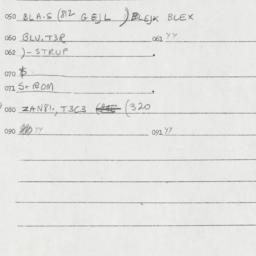 050 BLA.S (812 GEJL ) BLEJK BLEX
060 BLU.T3R 061 YY
062 )-STRUP
070 $
071 S+ROM
080 ZAN81, T3C3 (320
090 YY 091 YY